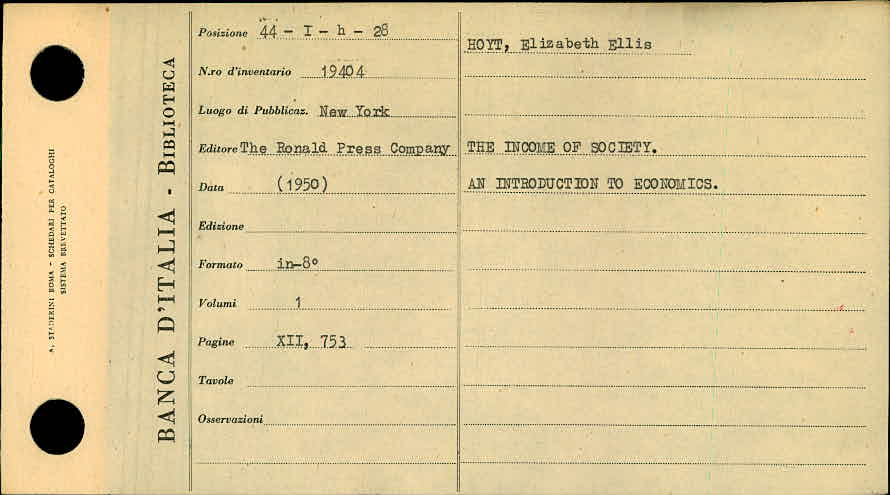 A. STADERINI ROMA - SCHEDARI PER CATALOGHI
SISTEMA BREVETTATO
BANCA D'ITALIA - BIBLIOTECA
Posizione 44 - I - h - 28
N.ro d'inventario 19404
Luogo di Pubblicaz. New York
Editore The Ronald Press Company
Data (1950)
Edizione
Formato in-8°
Volumi 1
Pagine XII, 753
Tavole
Osservazioni
HOYT, Elizabeth Ellis
THE INCOME OF SOCIETY.
AN INTRODUCTION TO ECONOMICS.